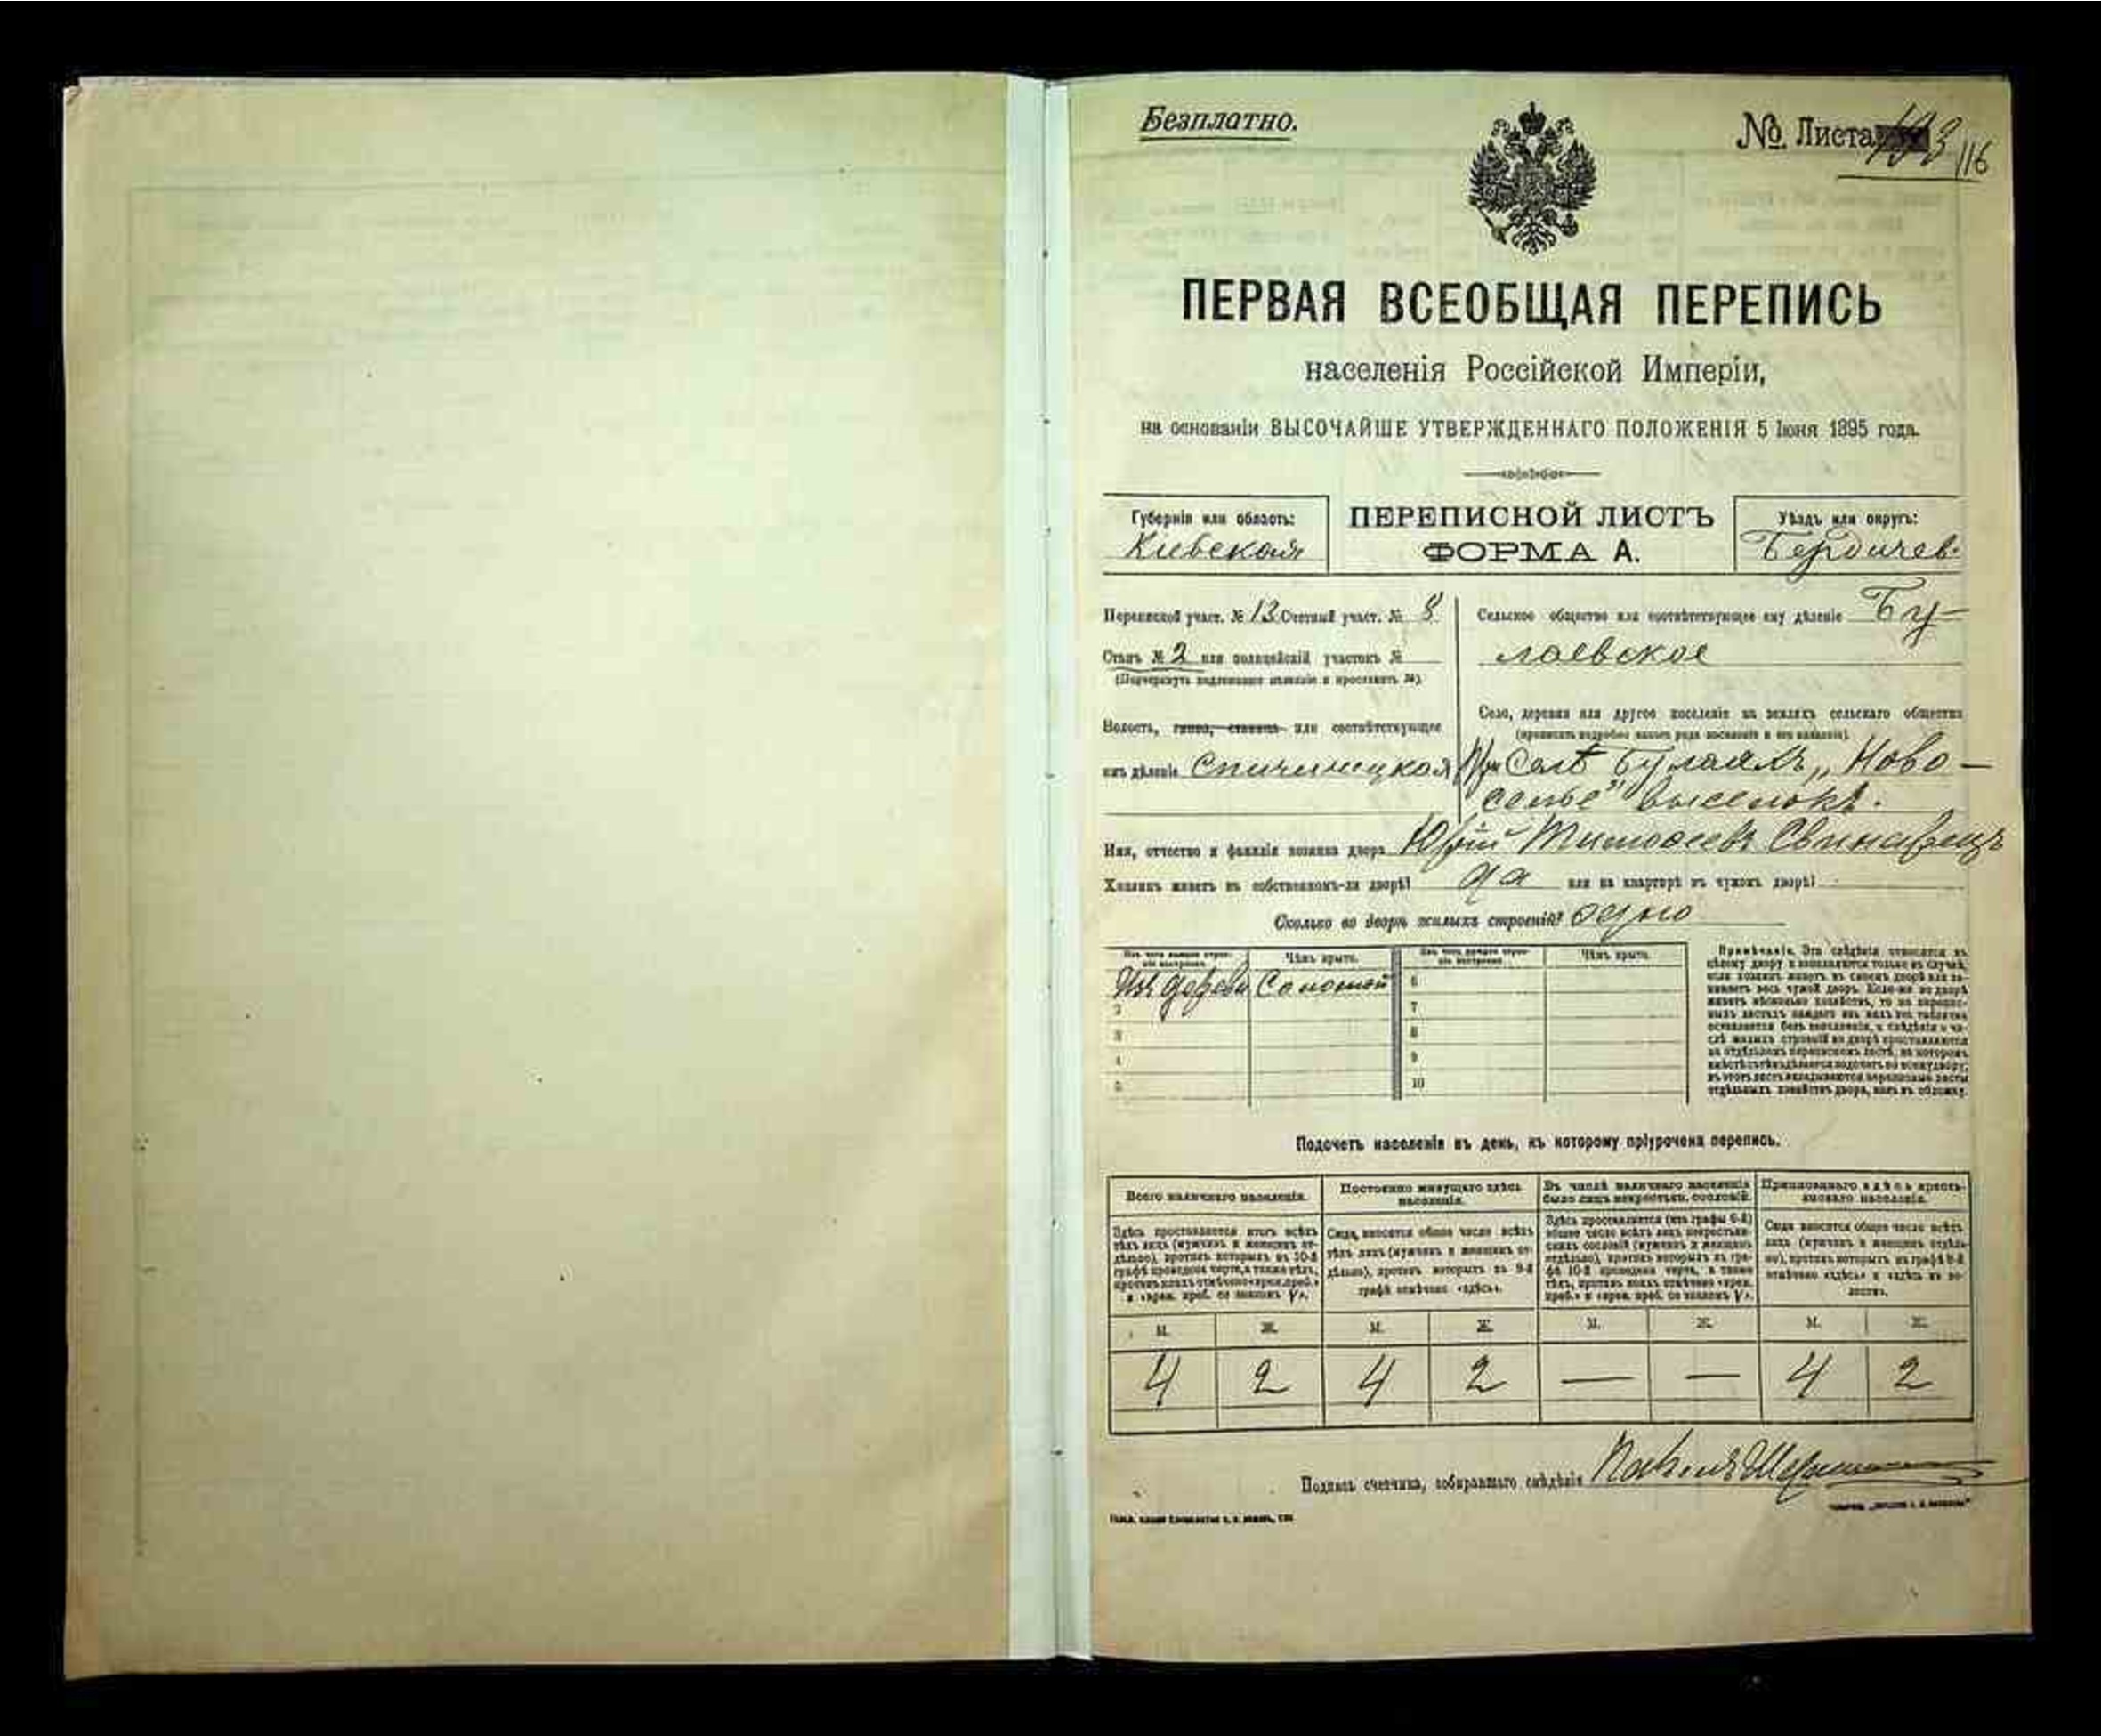 Безплатно.
№ Листа 116
ПЕРВАЯ ВСЕОБЩАЯ ПЕРЕПИСЬ
населенія Россійской Имперіи,
на основаніи ВЫСОЧАЙШЕ УТВЕРЖДЕННАГО ПОЛОЖЕНІЯ 5 Іюня 1895 года.
Губернія или область:
Кіевская
ПЕРЕПИСНОЙ ЛИСТЪ
ФОРМА А.
Уѣздъ или округъ:
Бердичев.
Переписной участ. № 13 Счетный участ. № 8
Станъ № 2 или полицейскій участокъ №
(Подчеркнуть надлежащее названіе и проставить №).
Волость, гмина, станица или соотвѣтствующее
имъ дѣленіе Спичинецкая
Сельское общество или соотвѣтствующее ему дѣленіе Бу-
лаевское
Село, деревня или другое поселеніе на земляхъ сельскаго общества
(прописать подробно какого рода поселеніе и его названіе).
При Селѣ Булаяхъ „Ново-
селье" выселокъ.
Имя, отчество и фамилія хозяина двора Юрій Тимофеевъ Свинарецъ
Хозяинъ живетъ въ собственномъ-ли дворѣ? да или на квартирѣ въ чужомъ дворѣ?
Сколько во дворѣ жилыхъ строеній? одно
Изъ чего каждое строеніе выстроено. Чѣмъ крыто. Изъ чего каждое строеніе выстроено. Чѣмъ крыто.
Изъ дерева Соломой 6
2 7
3 8
4 9
5 10
Примѣчаніе. Эти свѣдѣнія относятся къ
цѣлому двору и заполняются только въ случаѣ,
если хозяинъ живетъ въ своемъ дворѣ или за-
нимаетъ весь чужой дворъ. Если-же во дворѣ
живетъ нѣсколько хозяйствъ, то на перепис-
ныхъ листахъ каждаго изъ нихъ эта табличка
оставляется безъ заполненія, а свѣдѣнія о чи-
слѣ жилыхъ строеній во дворѣ проставляются
на отдѣльномъ переписномъ листѣ, на которомъ
вмѣстѣ съ тѣмъ дѣлается подсчетъ по всему двору;
въ этотъ листъ вкладываются переписные листы
отдѣльныхъ хозяйствъ двора, какъ въ обложку.
Подсчетъ населенія въ день, къ которому пріурочена перепись.
Всего наличнаго населенія.
Здѣсь проставляется итогъ всѣхъ
тѣхъ лицъ (мужчинъ и женщинъ от-
дѣльно), противъ которыхъ въ 10-й
графѣ проведена черта, а также тѣхъ,
противъ коихъ отмѣчено «врем. преб.»
и «врем. преб. со знакомъ V».
Постоянно живущаго здѣсь
населенія.
Сюда вносится общее число всѣхъ
тѣхъ лицъ (мужчинъ и женщинъ от-
дѣльно), противъ которыхъ въ 9-й
графѣ отмѣчено «здѣсь».
Въ числѣ наличнаго населенія
было лицъ некрестьян. сословій.
Здѣсь проставляется (изъ графы 6-й)
общее число всѣхъ лицъ некрестьян-
скихъ сословій (мужчинъ и женщинъ
отдѣльно), противъ которыхъ въ гра-
фѣ 10-й проведена черта, а также
тѣхъ, противъ коихъ отмѣчено «врем.
преб.» и «врем. преб. со знакомъ V».
Приписаннаго здѣсь кресть-
янскаго населенія.
Сюда вносится общее число всѣхъ
лицъ (мужчинъ и женщинъ отдѣль-
но), противъ которыхъ въ графѣ 8-й
отмѣчено «здѣсь» и «здѣсь въ во-
лости».
М. Ж. М. Ж. М. Ж. М. Ж.
4 2 4 2 — — 4 2
Подпись счетчика, собиравшаго свѣдѣнія